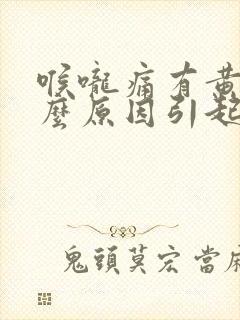 喉嚨痛有黃
麼原因引起
鬼頭莫宏 當麻